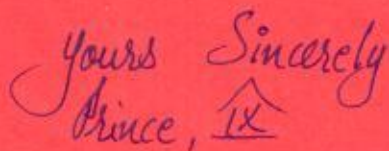 yours Sincerely
Prince, IX